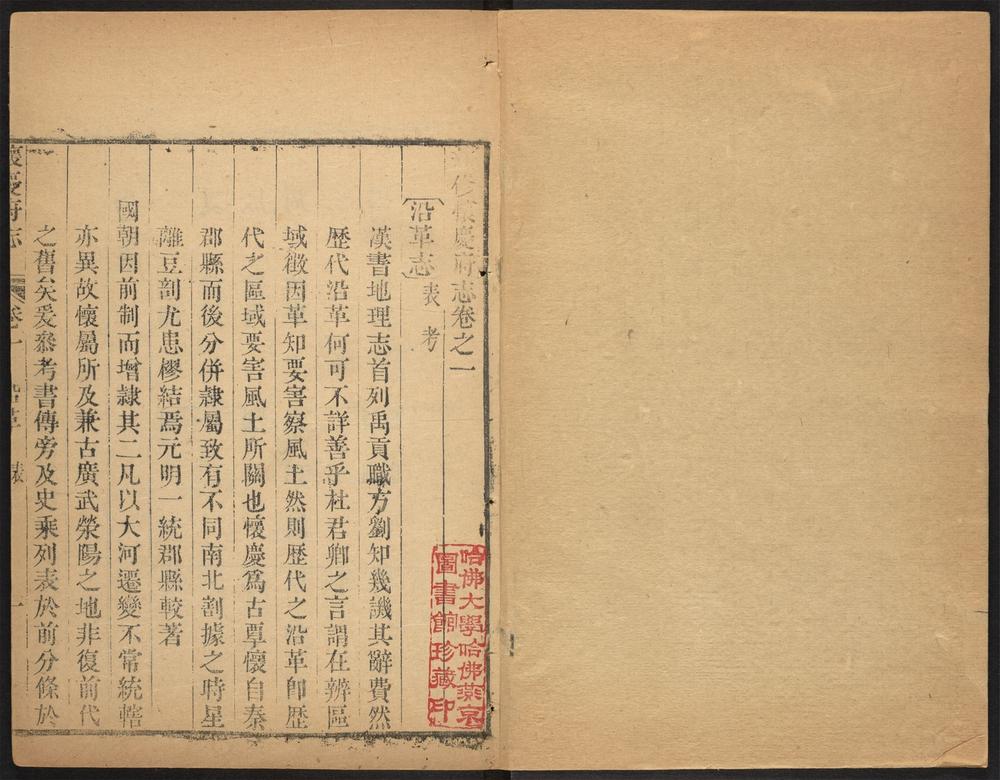 修懷慶府志卷之一
沿革志 表 考
漢書地理志首列禹貢職方劉知幾譏其辭費然
歷代沿革何可不詳善乎杜君卿之言謂在辨區
域徵因革知要害察風土然則歷代之沿革卽歷
代之區域要害風土所關也懷慶爲古覃懷自秦
郡縣而後分併隷屬致有不同南北割據之時星
離豆剖尤患樛結焉元明一統郡縣較著
國朝因前制而增隷其二凡以大河遷變不常統轄
亦異故懷屬所及兼古廣武滎陽之地非復前代
之舊矣爰叅考書傳旁及史乘列表於前分條於
懷慶府志 卷一 沿革 表 一
哈佛大學哈佛燕京
圖書館珍藏印